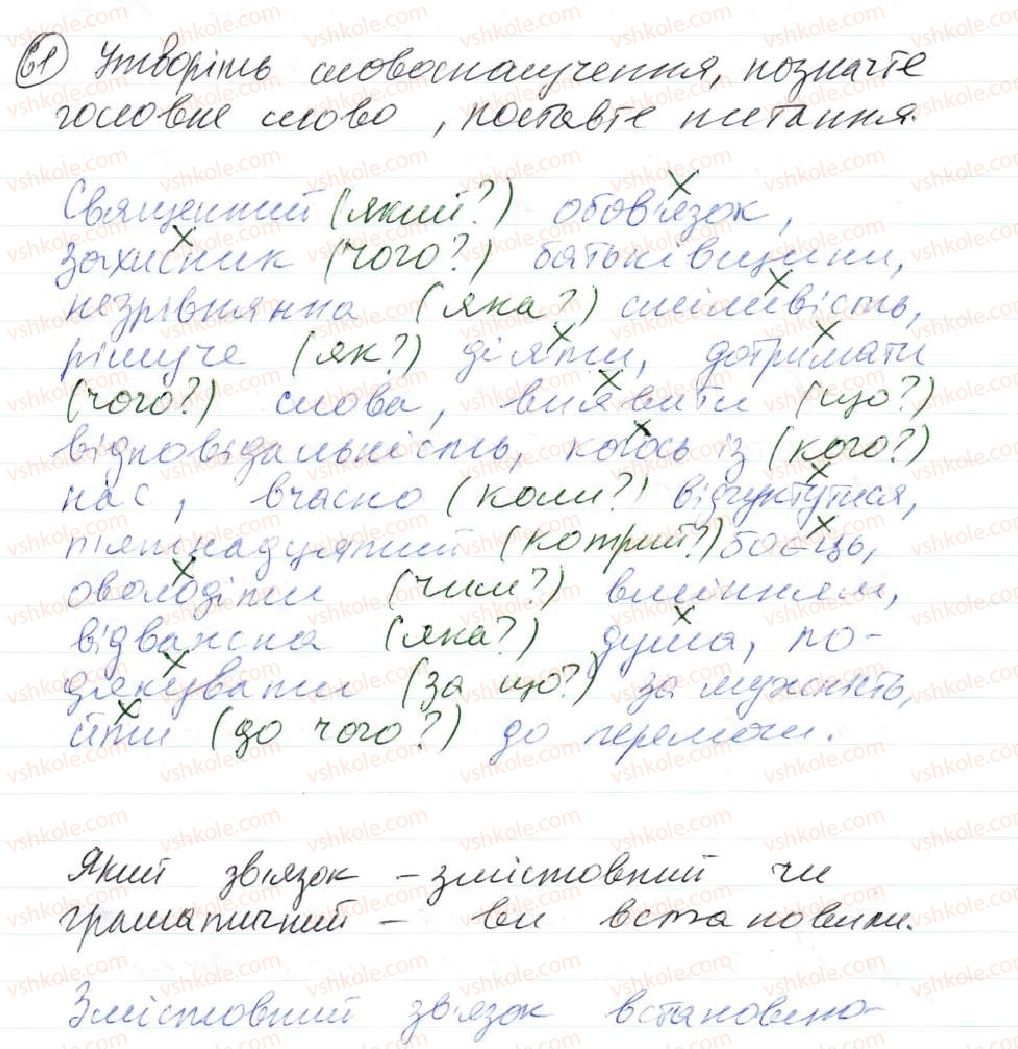 61 Утворіть словосполучення, позначте
головне слово, поставте питання.
Священний (який?) обов'язок,
захисник (чого?) батьківщини,
незрівнянна (яка?) сміливість,
рішуче (як?) діяти, дотримати
(чого?) слова, виявити (що?)
відповідальність, когось із (кого?)
нас, вчасно (коли?) відгукнутися,
п'ятнадцятий (котрий?) боєць,
оволодіти (чим?) вмінням,
відважна (яка?) душа, по-
дякувати (за що?) за мужність,
йти (до чого?) до перемоги.
Який зв'язок – змістовний чи
граматичний – ви встановили.
Змістовний зв'язок встановлено-